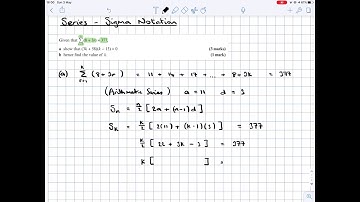 10:00 Sun 3 May
Series - Sigma Notation
Given that
a show that (3k + 58)(k - 13) = 0 (3 marks)
b hence find the value of k. (1 mark)
(a) k Σ r=1 (8+3r) = 11 + 14 + 17 + ... + 8+3k = 377
(Arithmetic Series) a = 11 d = 3
Sn = n/2 [2a + (n-1)d]
Sk = k/2 [2(11) + (k-1)(3)] = 377
k/2 [22 + 3k - 3] = 377
k [ ] =